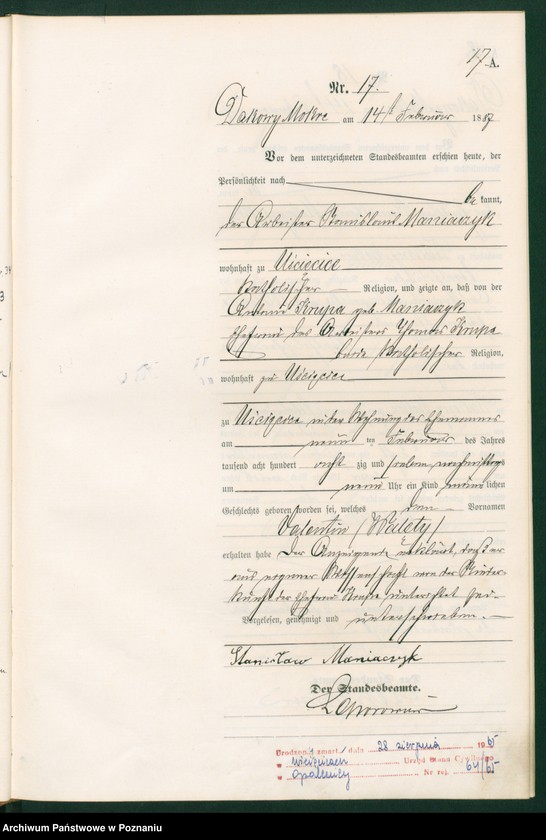 17 A.
Nr. 17.
Dakowy Mokre am 14t Februar 1887
Vor dem unterzeichneten Standesbeamten erschien heute, der
Persönlichkeit nach
be kannt,
der Arbeiter Stanislaus Maniaczyk
wohnhaft zu Uścięcice
katholischer Religion, und zeigte an, daß von der
Antonie Krupa geb. Maniaczyk
Ehefrau des Arbeiters Thomas Krupa
beide katholischer Religion,
wohnhaft zu Uścięcice
zu Uścięcice in der Wohnung des Ehemannes
am neun ten Februar des Jahres
tausend acht hundert acht zig und sieben, nachmittags
um neun Uhr ein Kind männlichen
Geschlechts geboren worden sei, welches den Vornamen
Valentin (Walety)
erhalten habe Der Anzeigende erklärt, daß er
aus eigener Wissenschaft von der Nieder-
kunft der Ehefrau Krupa unterrichtet sei.
Vorgelesen, genehmigt und unterschrieben.
Stanisław Maniaczyk
Der Standesbeamte.
zmarł dnia 28 sierpnia 1965
w Uścięcicach Urząd Stanu Cywilnego
w Opalenicy Nr rej. 64/65
Archiwum Państwowe w Poznaniu